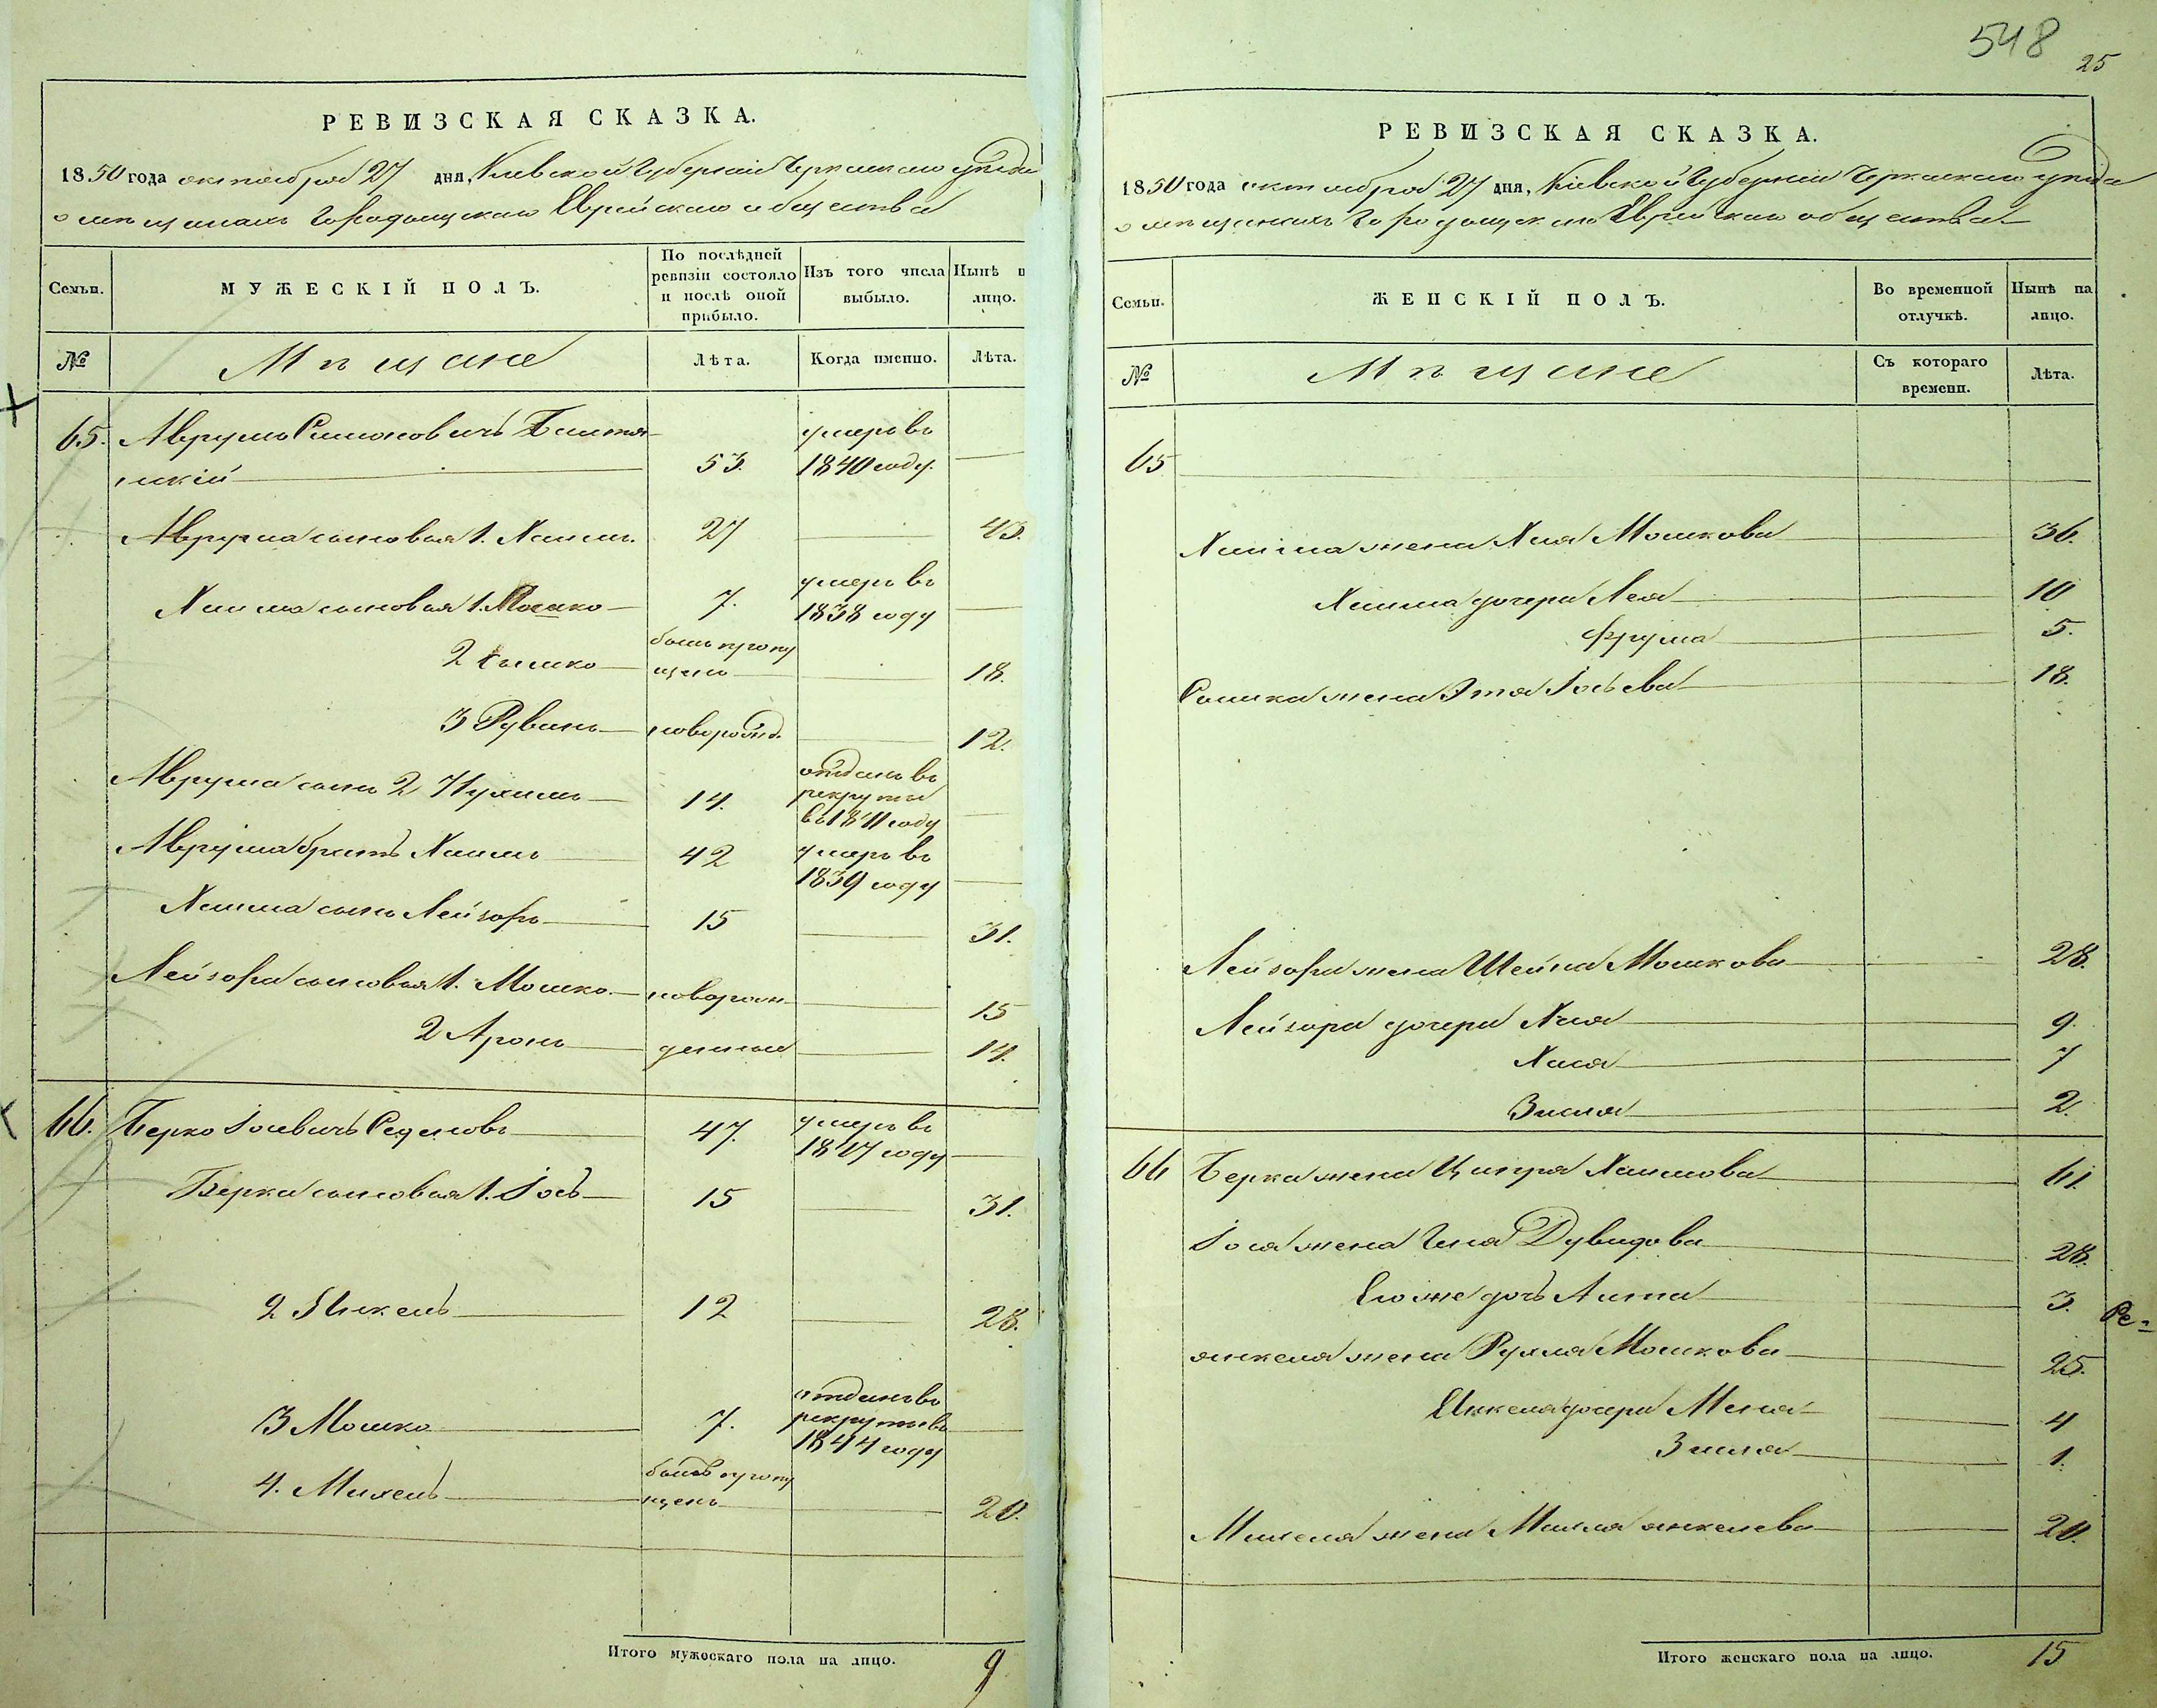 548
25
РЕВИЗСКАЯ СКАЗКА.
1850 года октября 27 дня, Киевской Губерніи Черкаскаго уѣзда
о мѣщанахъ Городищскаго Еврейскаго общества
Семьи.
МУЖЕСКІЙ ПОЛЪ.
По послѣдней ревизіи состояло и послѣ оной прибыло.
Изъ того числа выбыло.
Нынѣ н лицо.
№
Мѣщане
Лѣта.
Когда именно.
Лѣта.
65. Аврумъ Симоновичъ 53. умеръ въ 1840 году.
Аврума сыновья 1. Хаимъ. 27 43.
Хаима сыновья 1. Мошко 7. умеръ въ 1838 году
2 былъ пропущенъ 18.
3 Рувинъ новорожд. 12.
Аврума сынъ 2 Нухимъ 14. отданъ въ рекруты въ 1841 году
Аврума братъ Хаимъ 42 умеръ въ 1839 году
Хаима сынъ Лейзоръ 15 31.
Лейзора сыновья 1. Мошко новорож 15
2 Аронъ денные 14.
66. Берко Іосевичъ 47. умеръ въ 1847 году
Берка сыновья 1. Іось 15 31.
2 Янкель 12 28.
3 Мошко 7. отданъ въ рекруты въ 1844 году
4. Михель былъ пропущенъ 20.
Итого мужескаго пола на лицо. 9
РЕВИЗСКАЯ СКАЗКА.
1850 года октября 27 дня, Кіевской Губерніи Черкаскаго уѣзда
о мѣщанкахъ Городищскаго Еврейскаго общества
Семьи.
ЖЕНСКІЙ ПОЛЪ.
Во временной отлучкѣ.
Нынѣ на лицо.
№
Мѣщане
Съ котораго времени.
Лѣта.
65
Хаима жена Хая Мошкова 36.
Хаима дочери Лея 10
Фрума 5.
жена Этя Іосьева 18.
Лейзора жена Шейна Мошкова 28.
Лейзора дочери Хая 9.
Хася 7
Зисля 2.
66 Берка жена Ципра Хаимова 61.
Іося жена Дувидова 28.
Его же дочь 3.
Ре-
Янкеля жена Рухля Мошкова 25.
Янкеля дочери 4
Зисля 1.
Михеля жена Янкелева 20.
Итого женскаго пола на лицо. 15